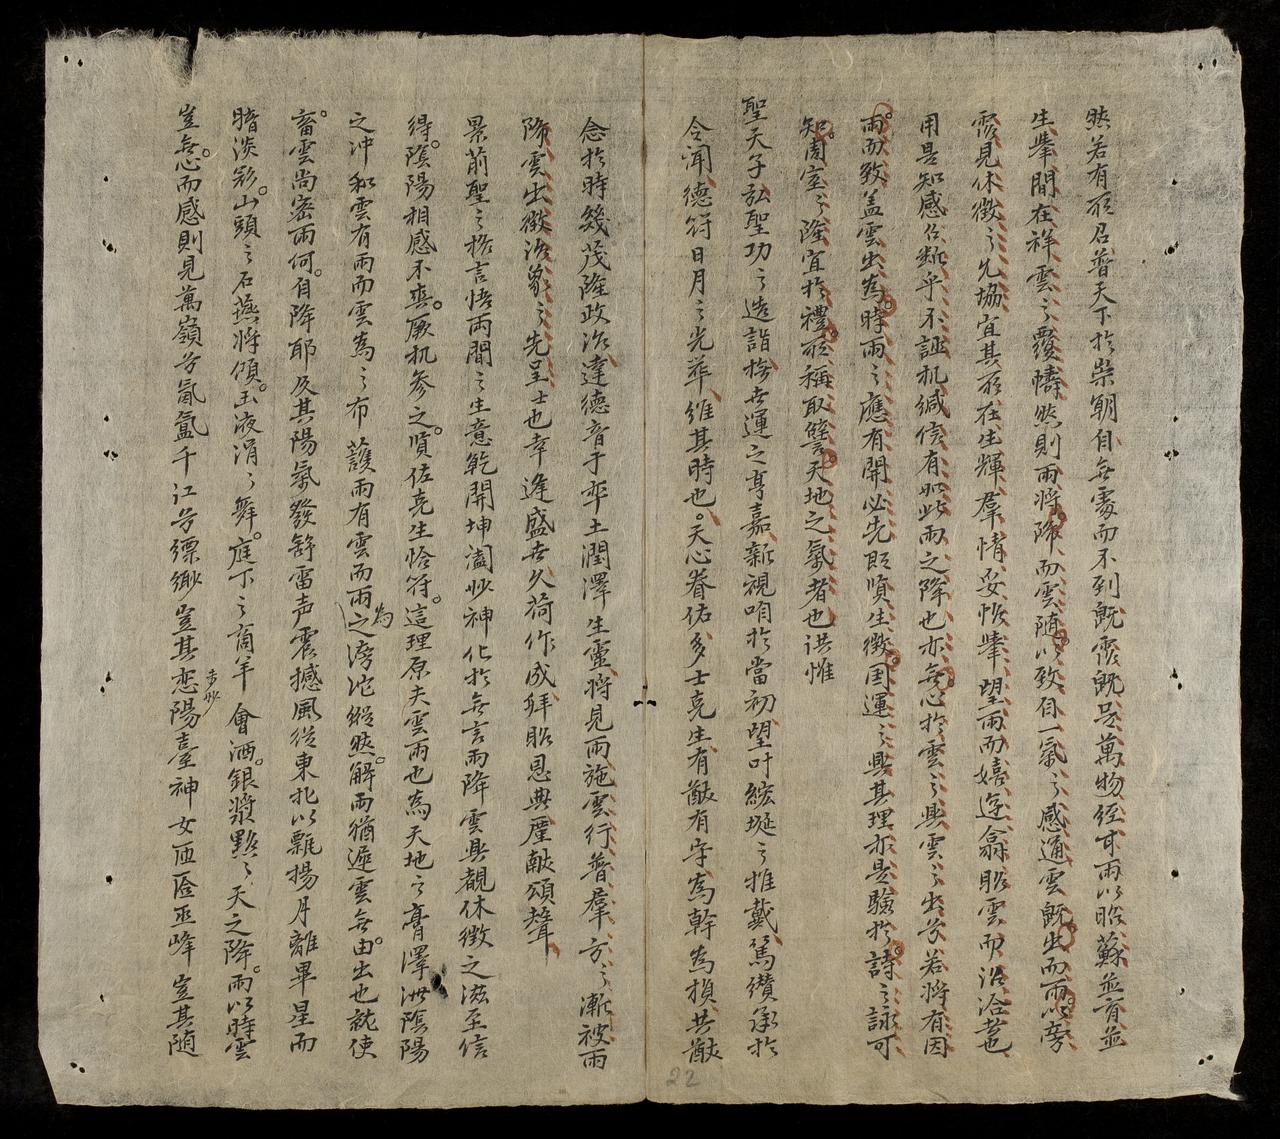 然若有所召普天下於崇朝自無處而不到既霑既足萬物經甘雨以昭蘇並育並
生擧間在祥雲之覆幬然則雨將降而雲随以致自一氣之感通雲既出而雨以旁
霑見休徵之先協宜其所在生輝羣情妥怗擧望雨而嬉遊翕昭雲而洽
用是知感召断乎不誣机緘信有如此雨之降也亦無心於雲之興雲之出兮若將有因
雨而致盖雲出為時雨之應有開必先既賢生徵囯運之興其理亦是驗於詩之詠可
知周室之隆宜於禮所稱取譬天地之氣者也洪惟
聖天子弘聖功之造詣撫世運之亨嘉新視咱於當初望叶綋埏之推戴篤纘承於
今聞德符日月之光華維其時也天心眷佑多士克生有猷有守為幹為損共猷
念於時幾茂隆政治達德音于率土潤澤生靈將見雨施雲行普羣方之漸被雨
降雲出徵治象之先呈士也幸逢盛世久荷作成拜貽恩典賡載頌聲
景前聖之格言恠兩間之生意乾開坤闔妙神化於無言雨降雲興覩休徵之滋至信
得陰陽相感不爽厥机参之賢佐克生恰符這理原夫雲雨也為天地之膏澤洪陰陽
之冲和雲有雨而雲為之布護雨有雲而雨為之滂沱縱然解雨猶遲雲無由出也就使
畜雲尚密雨何自降耶及其陽氣發舒雷声震撼風從東北以飄揚月離畢星而
暗淡彩山頭之石燕將傾玉液涓之舞庭下之商羊會洒銀漿點之天之降雨以時雲
豈無心而感則見萬嶺兮氤氳千江兮縹緲豈其恋步妙陽臺神女而陰巫峰豈其随
22